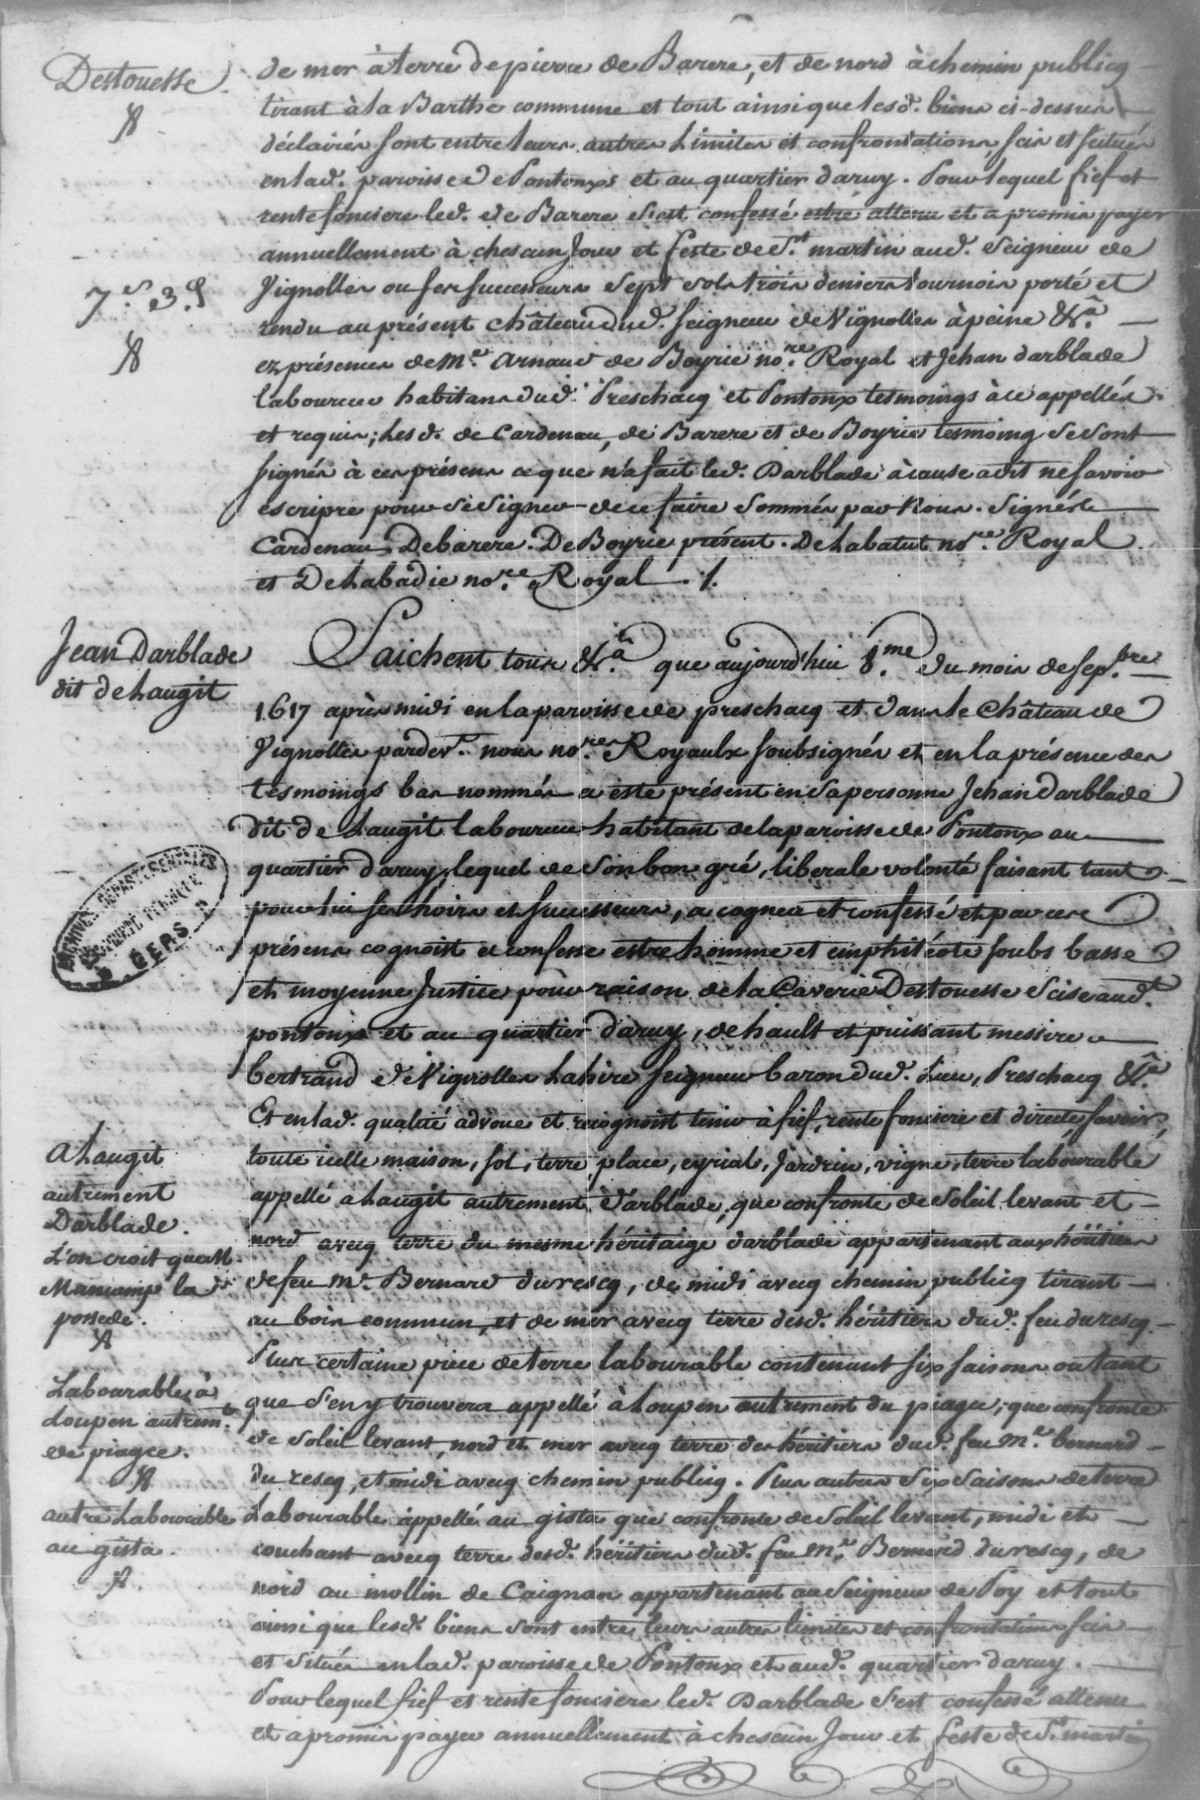 Destouesse.
de mer à terre de pierre de Barere, et de nord à chemin publicq
tirant à la Barthe commune et tout ainsi que lesd. biens ci-dessus
déclairés sont entre leurs autres limites et confrontations scis et scitués
en lad. paroisse de Pontonx et au quartier daruy. Pour lequel fief et
rente fonciere led. de Barere s'est confessé estre attenu et a promis payer
annuellement à chescun Jour et feste de St martin aud. Seigneur de
7.s 3.d
Vignolles ou ses successeurs sept sols trois deniers tournois porté et
rendu au présent château dud. seigneur de Vignolles à peine &a.
ez présences de Me. Arnaud de Boyrie nore. Royal et Jehan darblade
laboureur habitans dud. Preschacq et Pontonx tesmoings à ce appellés
et requis; Lesd. de Cardenau, de Barere et de Boyrie tesmoing se sont
signés à ces présens ce que n'a fait led. Darblade à cause a dit ne savoir
escripre pour se signer de ce faire sommés par Nous. Signés
Cardenau, Debarere. De Boyrie présent. Delabatut nore. Royal
et Delabadie nore. Royal ./.
Jean Darblade
dit de Laugit
Saichent tous &a. que aujourd'hui 8.me du mois de sepbre.
1617 après midi en la paroisse de preschacq et dans le Château de
Vignolles pardevt. nous nores. Royaulx soubsignés et en la présence des
tesmoings bas nommés a esté présent en sa personne Jehan darblade
dit de Laugit laboureur habitant de la paroisse de Pontonx au
quartier daruy, lequel de son bon gré, liberale volonté faisant tant
pour lui ses hoirs et successeurs, a cogneu et confessé et par ces
présens cognoist et confesse estre homme et emphitéote soubs basse
et moyenne Justice pour raison de la Caverie Destouesse scise aud.
pontonx et au quartier daruy, de hault et puissant messire
bertrand de Vignolles Lahire seigneur baron dud. Lieu, Preschacq &a.
Et en lad. qualité advoue et recognoist tenir à fief, rente fonciere et directe savoir,
toute icelle maison, sol, terre place, eyrial, Jardrin, vigne, terre labourable
appellé a Laugit autrement d'arblade, que confronte de soleil levant et
nord avecq terre du mesme héritaige darblade appartenant aux héritiers
de feu Me. Bernard duresq, de midi avecq chemin publicq tirant
au bois commun, et de mer avecq terre desd. héritiers dud. feu duresq.
a Laugit
autrement
Darblade.
L'on croit que M
Maniamp la
possede.
Plus certaine piece de terre labourable contenant six saisons ou tant
que s'en y trouvera appellé à Loupen autrement du piagee, que confronte
de soleil levant, nord et mer avecq terre des héritiers dud. feu Me. bernard
duresq, et midi avecq chemin publicq. Plus autres six saisons de terre
Labourable à
Loupen autremt.
de piagee.
Labourable appellé au gista que confronte de soleil levant, midi et
couchant avecq terre desd. héritiers dud. feu Me. Bernard duresq, de
nord au mollin de Caignan appartenant au Seigneur de Poy et tout
autre Labourable
au gista.
ainsi que lesd. biens sont entre leurs autres limites et confrontations scis
et situés en lad. paroisse de Pontonx et aud. quartier daruy.
Pour lequel fief et rente fonciere led. Darblade s'est confessé attenu
et a promis payer annuellement à chescun Jour et feste de St. martin
ARCHIVES DEPARTEMENTALES
GERS